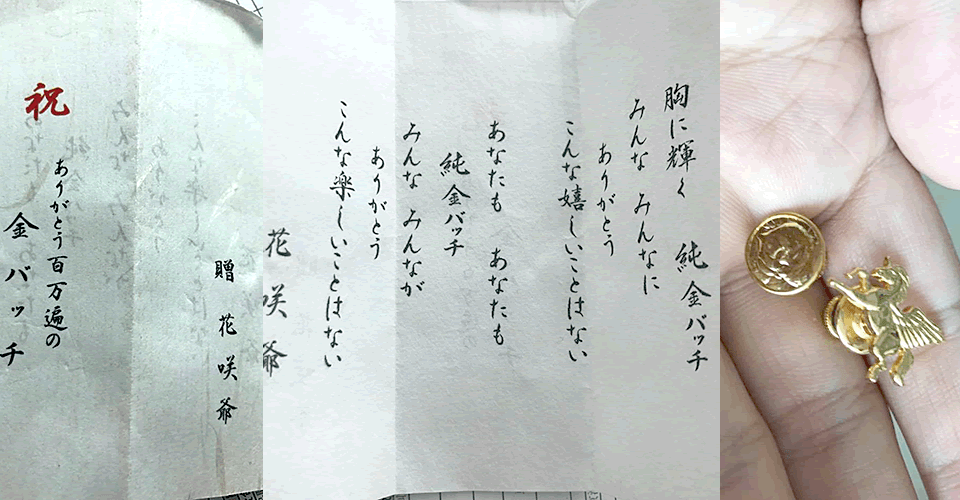 祝
ありがとう百万遍の
金バッチ
贈 花咲爺
胸に輝く 純金バッチ
みんな みんなに
ありがとう
こんな嬉しいことはない
あなたも あなたも
純金バッチ
みんな みんなが
ありがとう
こんな楽しいことはない
花咲爺